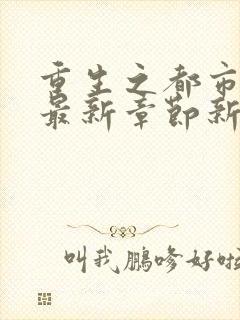 重生之都市
最新章节新
叫我鹏哆好啦